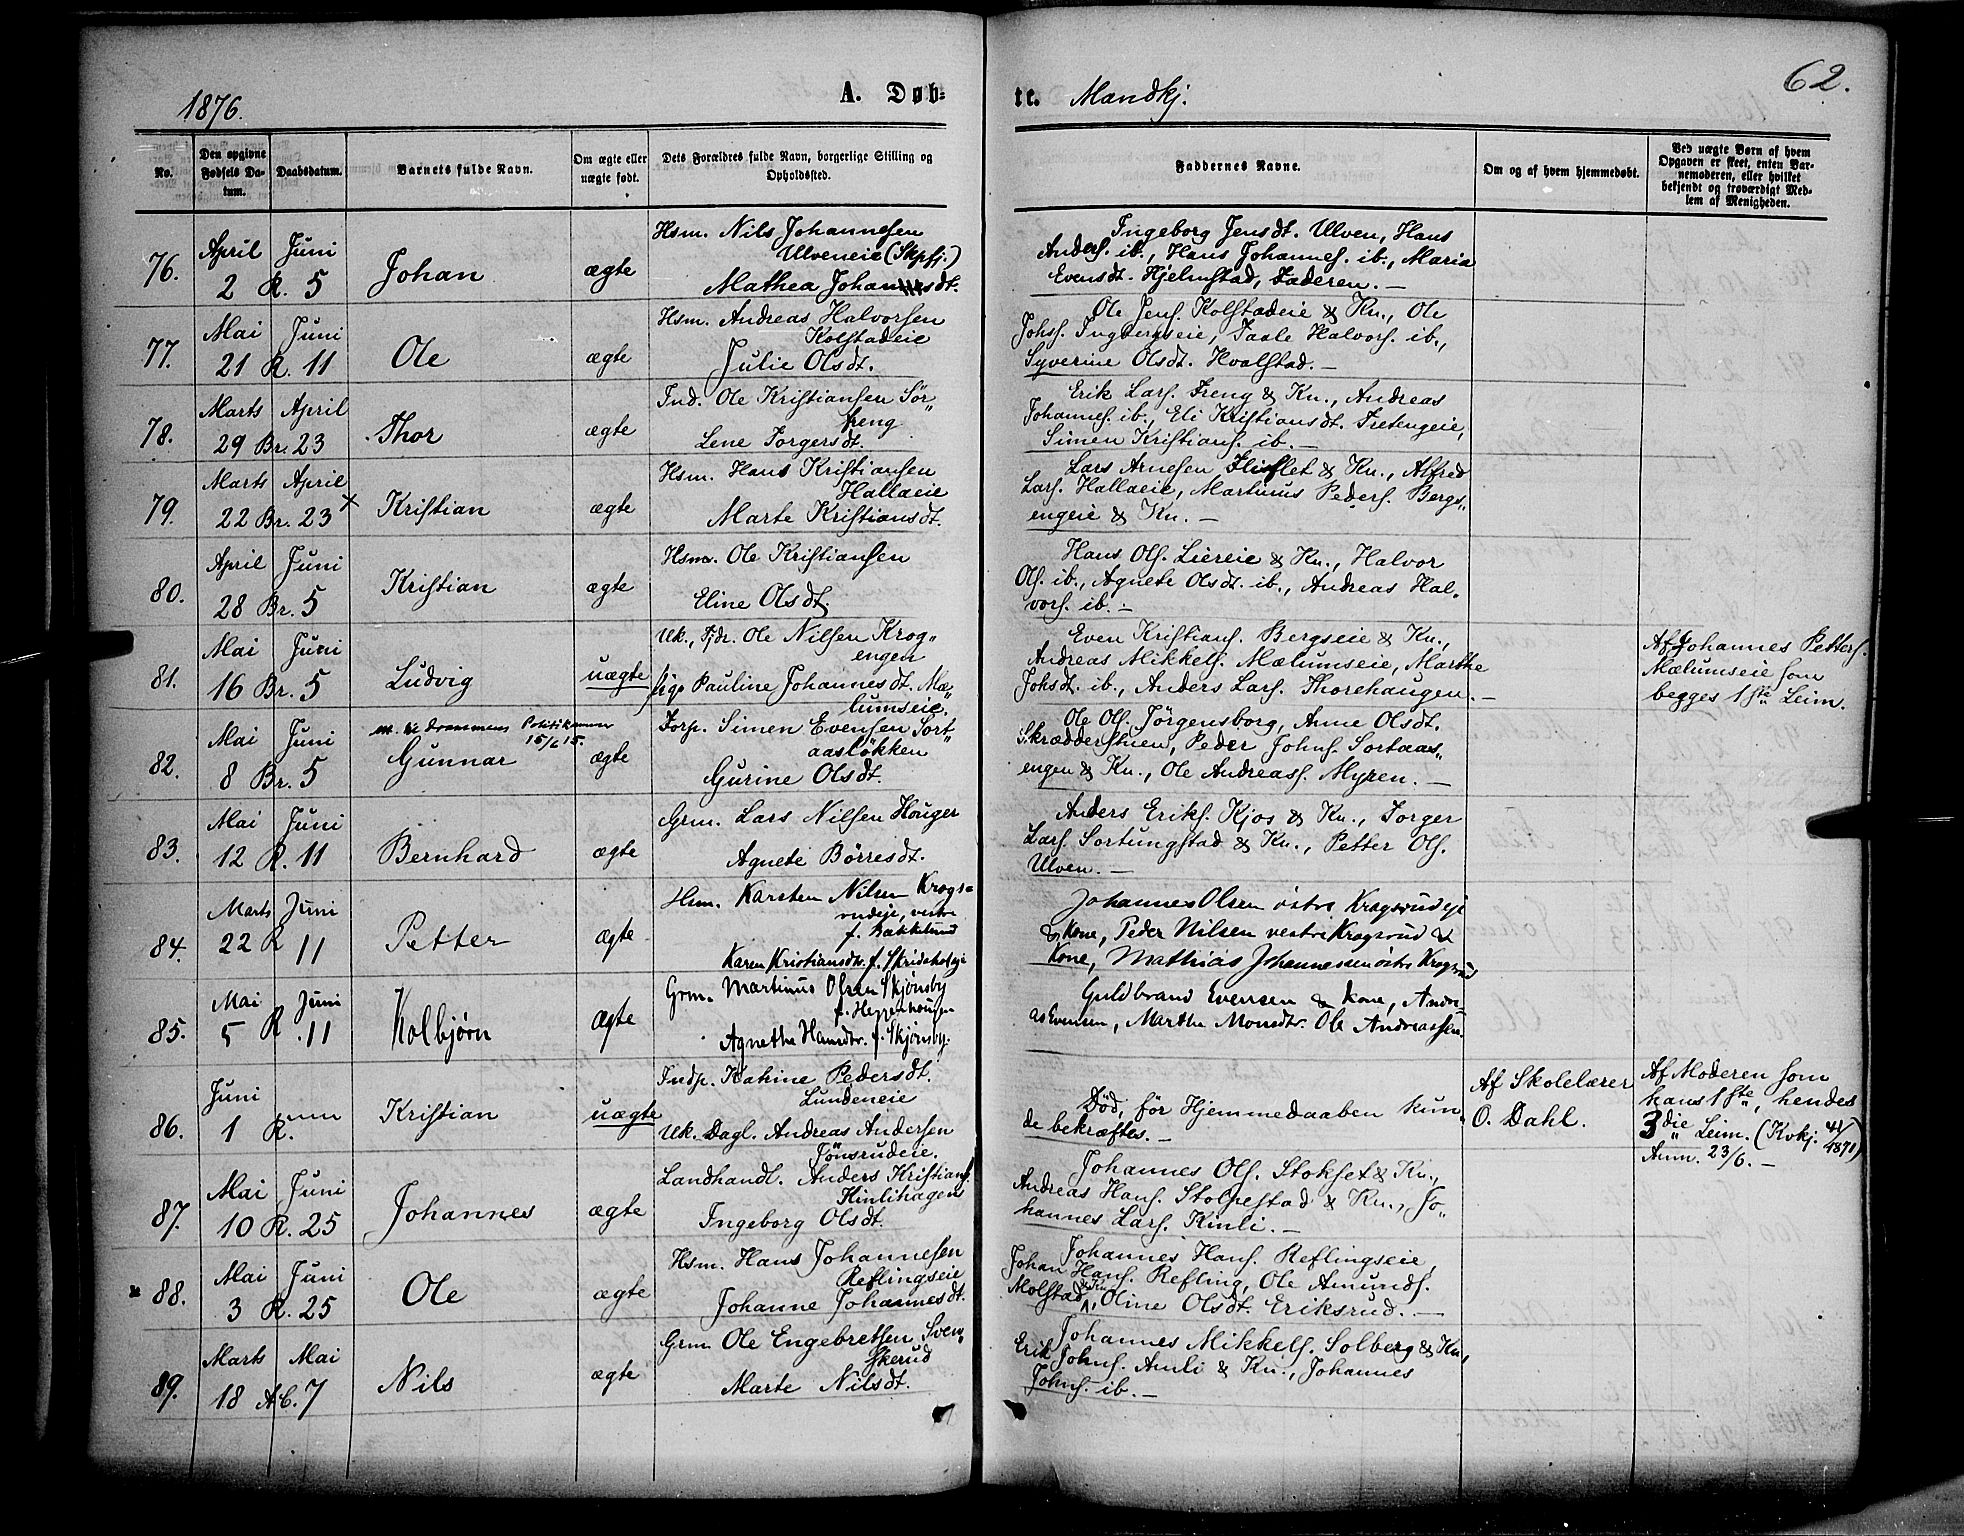 1876.
A. Døb-
te. Mandkj.
62.
No.
Den opgivne Fødsels Da-
tum.
Daabsdatum.
Barnets fulde Navn.
Om ægte eller
uægte født.
Dets Forældres fulde Navn, borgerlige Stilling og
Opholdssted.
Faddernes Navne.
Om og af hvem hjemmedøbt.
Ved uægte Børn af hvem
Opgaven er skeet, enten Bar-
nemoderen, eller hvilket
bekjendt og troværdigt Med-
lem af Menigheden.
76. April 2 Juni R. 5 Johan ægte
Hsm. Nils Johannesen
Ulveneie (Skpfj.)
Mathea Johannesdt.
Ingeborg Jensdt. Ulven, Hans
Anders. ib., Hans Johannes. ib., Maria
Evensdt. Hjelmstad, Faderen. —
77. Mai 21 Juni R. 11 Ole ægte
Hsm. Andreas Halvorsen
Kolstadeie
Julie Olsdt.
Ole Jens. Kolstadeie & Kn., Ole
Johs. Ingbergseie, Paale Halvors. ib.,
Syverine Olsdt. Hvalstad. —
78. Marts 29 April Br. 23 Thor ægte
Ind. Ole Kristiansen Sør„
hreng
Lene Torgersdt.
Erik Lars. Freng & Kn., Andreas
Johannes. ib., Eli Kristiansdt. Fretengeie,
Simen Kristians. ib. —
79. Marts 22 April Br. 23 × Kristian ægte
Hsm. Hans Kristiansen
Hallaeie
Marte Kristiansdt.
Lars Arnesen Fliflet & Kn., Alfred
Lars. Hallaeie, Martinus Peders. Bergs„
engeie & Kn. —
80. April 28 Juni Br. 5 Kristian ægte
Hsm. Ole Kristiansen
Eline Olsdt.
Hans Ols. Liereie & Kn., Halvor
Ols. ib., Agnete Olsdt. ib., Andreas Hal„
vors. ib. —
81. Mai 16 Juni Br. 5 Ludvig uægte
Uk., Tjdr. Ole Nilsen Krog„
engen
Pige Pauline Johannesdt. Mæ„
lumseie.
Even Kristians. Bergseie & Kn.,
Andreas Mikkels. Mælumseie, Marthe
Johsdt. ib., Anders Lars. Thorehaugen. —
Af Johannes Petters.
Mælumseie som
begges 1ste Leim.
82. Mai 8 Juni Br. 5 Gunnar ægte
Drammens Politikammer
15/6 15.
Forp. Simen Evensen Sort„
aasløkken
Gurine Olsdt.
Ole Ols. Jörgensborg, Anne Olsdt.
Skrædderstuen, Peder Johns. Sortaas„
engen & Kn., Ole Andreas. Myren. —
83. Mai 12 Juni R. 11 Bernhard ægte
Grm. Lars Nilsen Houger
Agnete Börresdt.
Anders Eriks. Kjos & Kn., Torger
Lars. Sortungstad & Kn., Petter Ols.
Ulven. —
84. Marts 22 Juni R 11 Petter ægte
Hsm. Karsten Nilsen Krogs-
rudeje, vestre
f. Bakkelund
Karen Kristiansdtr. f. Skridshol eje
Johannes Olsen østre Krogsrudeje
& kone, Peder Nilsen vestre Krogsrud &
Kone, Mathias Johannessen østre Krogsrud
85. Mai 5 Juni R. 11 Kolbjørn ægte
Grm. Martinus Olsen Skjønsby
f. Heppenhougen
Agnethe Hansdtr. f. Skjønsby.
Guldbrand Evensen & Kone, Andre
as Evensen, Marthe Monsdtr. Ole Andreassen.
86. Juni 1 R. Kristian uægte
Indp. Katrine Pedersdt.
Lundeneie
Uk. Dagl. Andreas Andersen
Tönsrudeie.
Död, för Hjemmedaaben kun„
de bekræftes. —
Af Skolelærer
O. Dahl.
Af Moderen som
hans 1ste, hendes
3die Leim. (Kvkj. 41/1871)
Anm. 23/6. —
87. Mai 10 Juni R. 25 Johannes ægte
Landhandl. Anders Kristians.
Kinlihagen
Ingeborg Olsdt.
Johannes Ols. Stokset & Kn.,
Andreas Hans. Stolpestad & Kn., Jo„
hannes Lars. Kinli. —
88. Mai 3 Juni R. 25 Ole ægte
Hsm. Hans Johannesen
Reflingseie
Johanne Johannesdt.
Johannes Hans. Reflingseie,
Johan Hans. Refling, Ole Amunds.
Molstad & Kn., Oline Olsdt. Eriksrud. —
89. Marts 18 Mai AC. 7 Nils ægte
Grm. Ole Engebretsen Sven„
skerud
Marte Nilsdt.
Johannes Mikkels. Solberg & Kn.,
Erik Johns. Amli & Kn., Johannes
Johns. ib. —